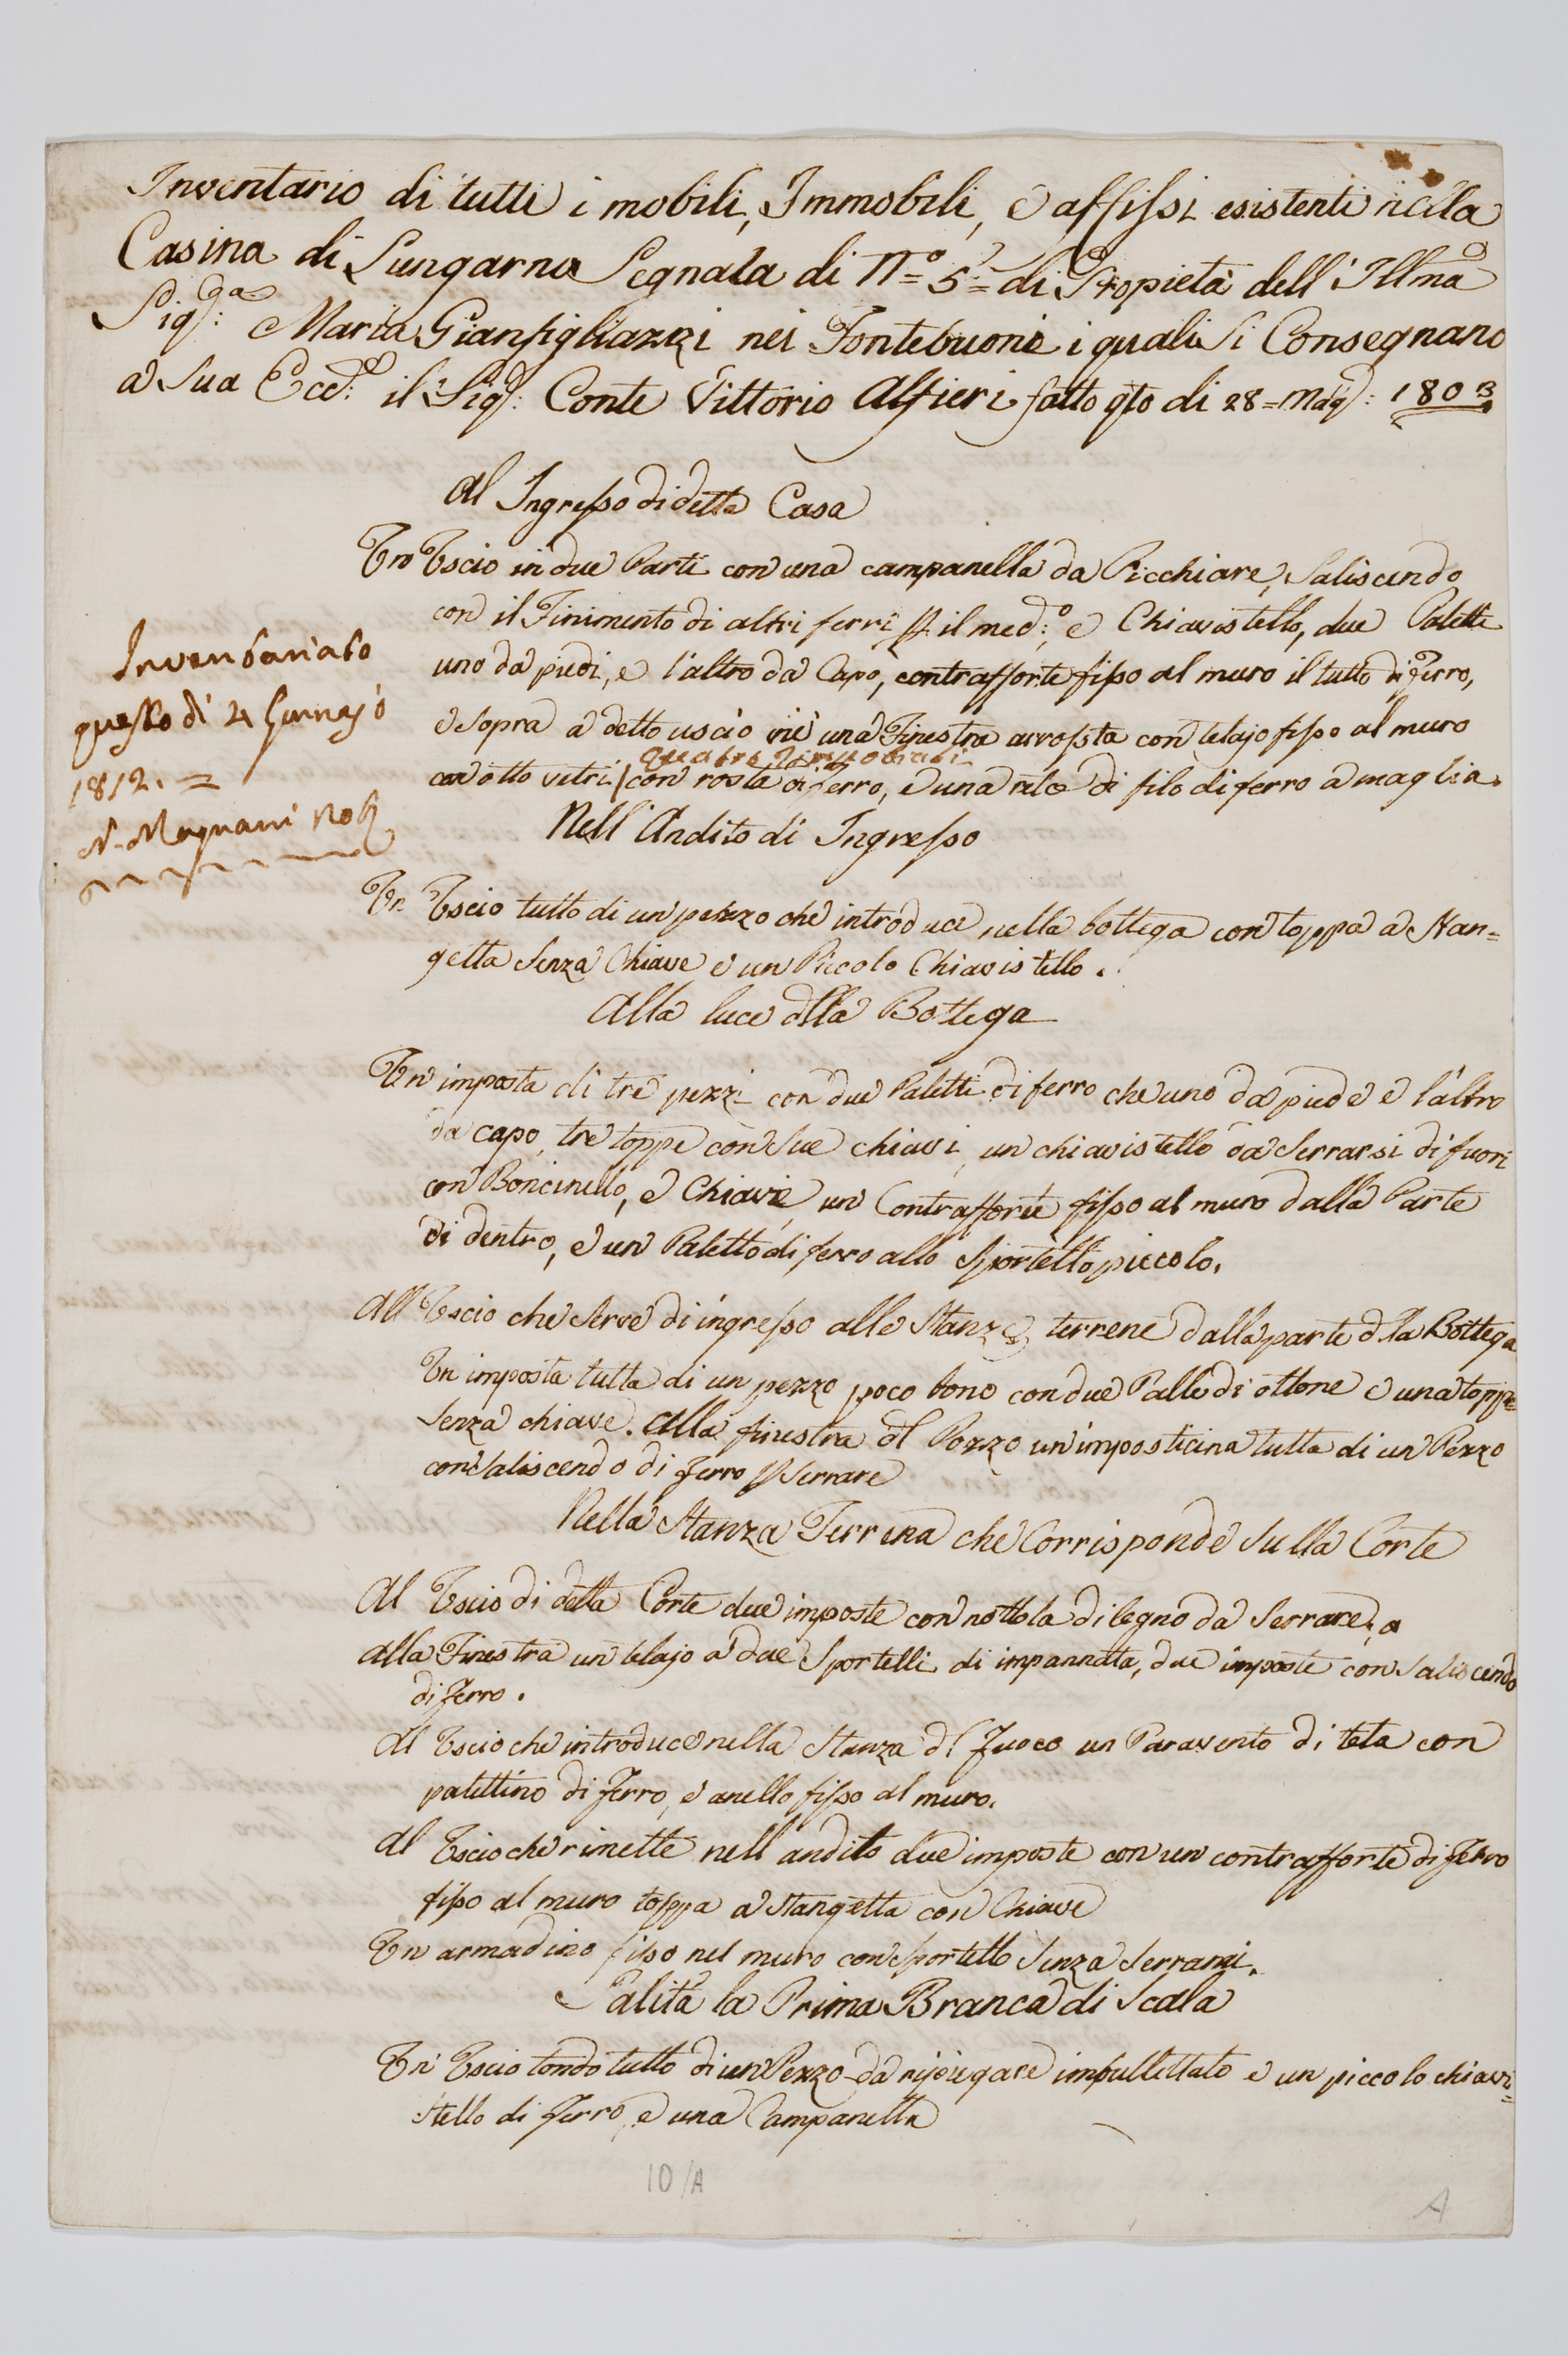 Inventario di tutti i mobili, Immobili, e affissi esistenti nella
Casina di Lungarno Segnata di N.º 5.º di Propietà dell' Illma
Sig.ra Maria Gianfigliazzi nei Fontebuoni i quali Si Consegnano
a Sua Ecc.a il Sig.: Conte Vittorio Alfieri fatto qto di 28 = Mag.: 1803
Al Ingresso di detta Casa
Un Uscio in due Parti con una campanella da Picchiare, Saliscendo
con il Finimento di altri ferri p il med.:o e Chiavistello, due Paletti
uno da piedi, e l'altro da Capo, contrafforte fisso al muro il tutto di Ferro,
e Sopra a detto uscio vi è una Finestra arrosta con telajo fisso al muro
quatro
con otto vetri / con rosta di Ferro, e una rete di filo di ferro a maglia.
Inventariato
questo dì 21 Gennajo
1812. =
N. Magnani
Nell' Andito di Ingresso
Un Uscio tutto di un pezzo che introduce nella bottega con toppa a Stan=
getta Senza Chiave e un Piccolo Chiavistello.
Alla luce dlla Bottega
Un imposta di tre pezzi con due Paletti di ferro che uno da piede e l'altro
da capo, tre toppe con Sue chiavi, un chiavistello da Serrarsi di fuori
con Boncinello, e Chiavi e un Contrafforte fisso al muro dalla Parte
di dentro, e un Paletto di ferro allo Sportello piccolo.
All Uscio che Serve di ingresso alle Stanze terrene dalla parte dlla Bottega
Un imposta tutta di un pezzo poco bono con due Palle di ottone e una toppa
Senza chiave. Alla finestra dl Pozzo un'imposticina tutta di un Pezzo
con Saliscendo di Ferro p Serrare
Nella Stanza Terrena che Corrisponde Sulla Corte
Al Uscio di detta Corte due imposte con nottola di legno da Serrare, e
alla Finestra un telajo a due Sportelli di impannata, due imposte con Saliscendo
di Ferro.
Al Uscio che introduce nella Stanza dl Fuoco un Paravento di tela con
palettino di Ferro, e anello fisso al muro.
Al Uscio che rimette nell andito due imposte con un contrafforte di Ferro
fisso al muro toppa a Stangetta con Chiave
Un armadino fisso nel muro con Sportello Senza Serrami.
Salita la Prima Branca di Scala
Un Uscio tondo tutto di un Pezzo da ripiegare imbullettato e un piccolo chiavi=
stello di Ferro, e una Campanella
10/A
A